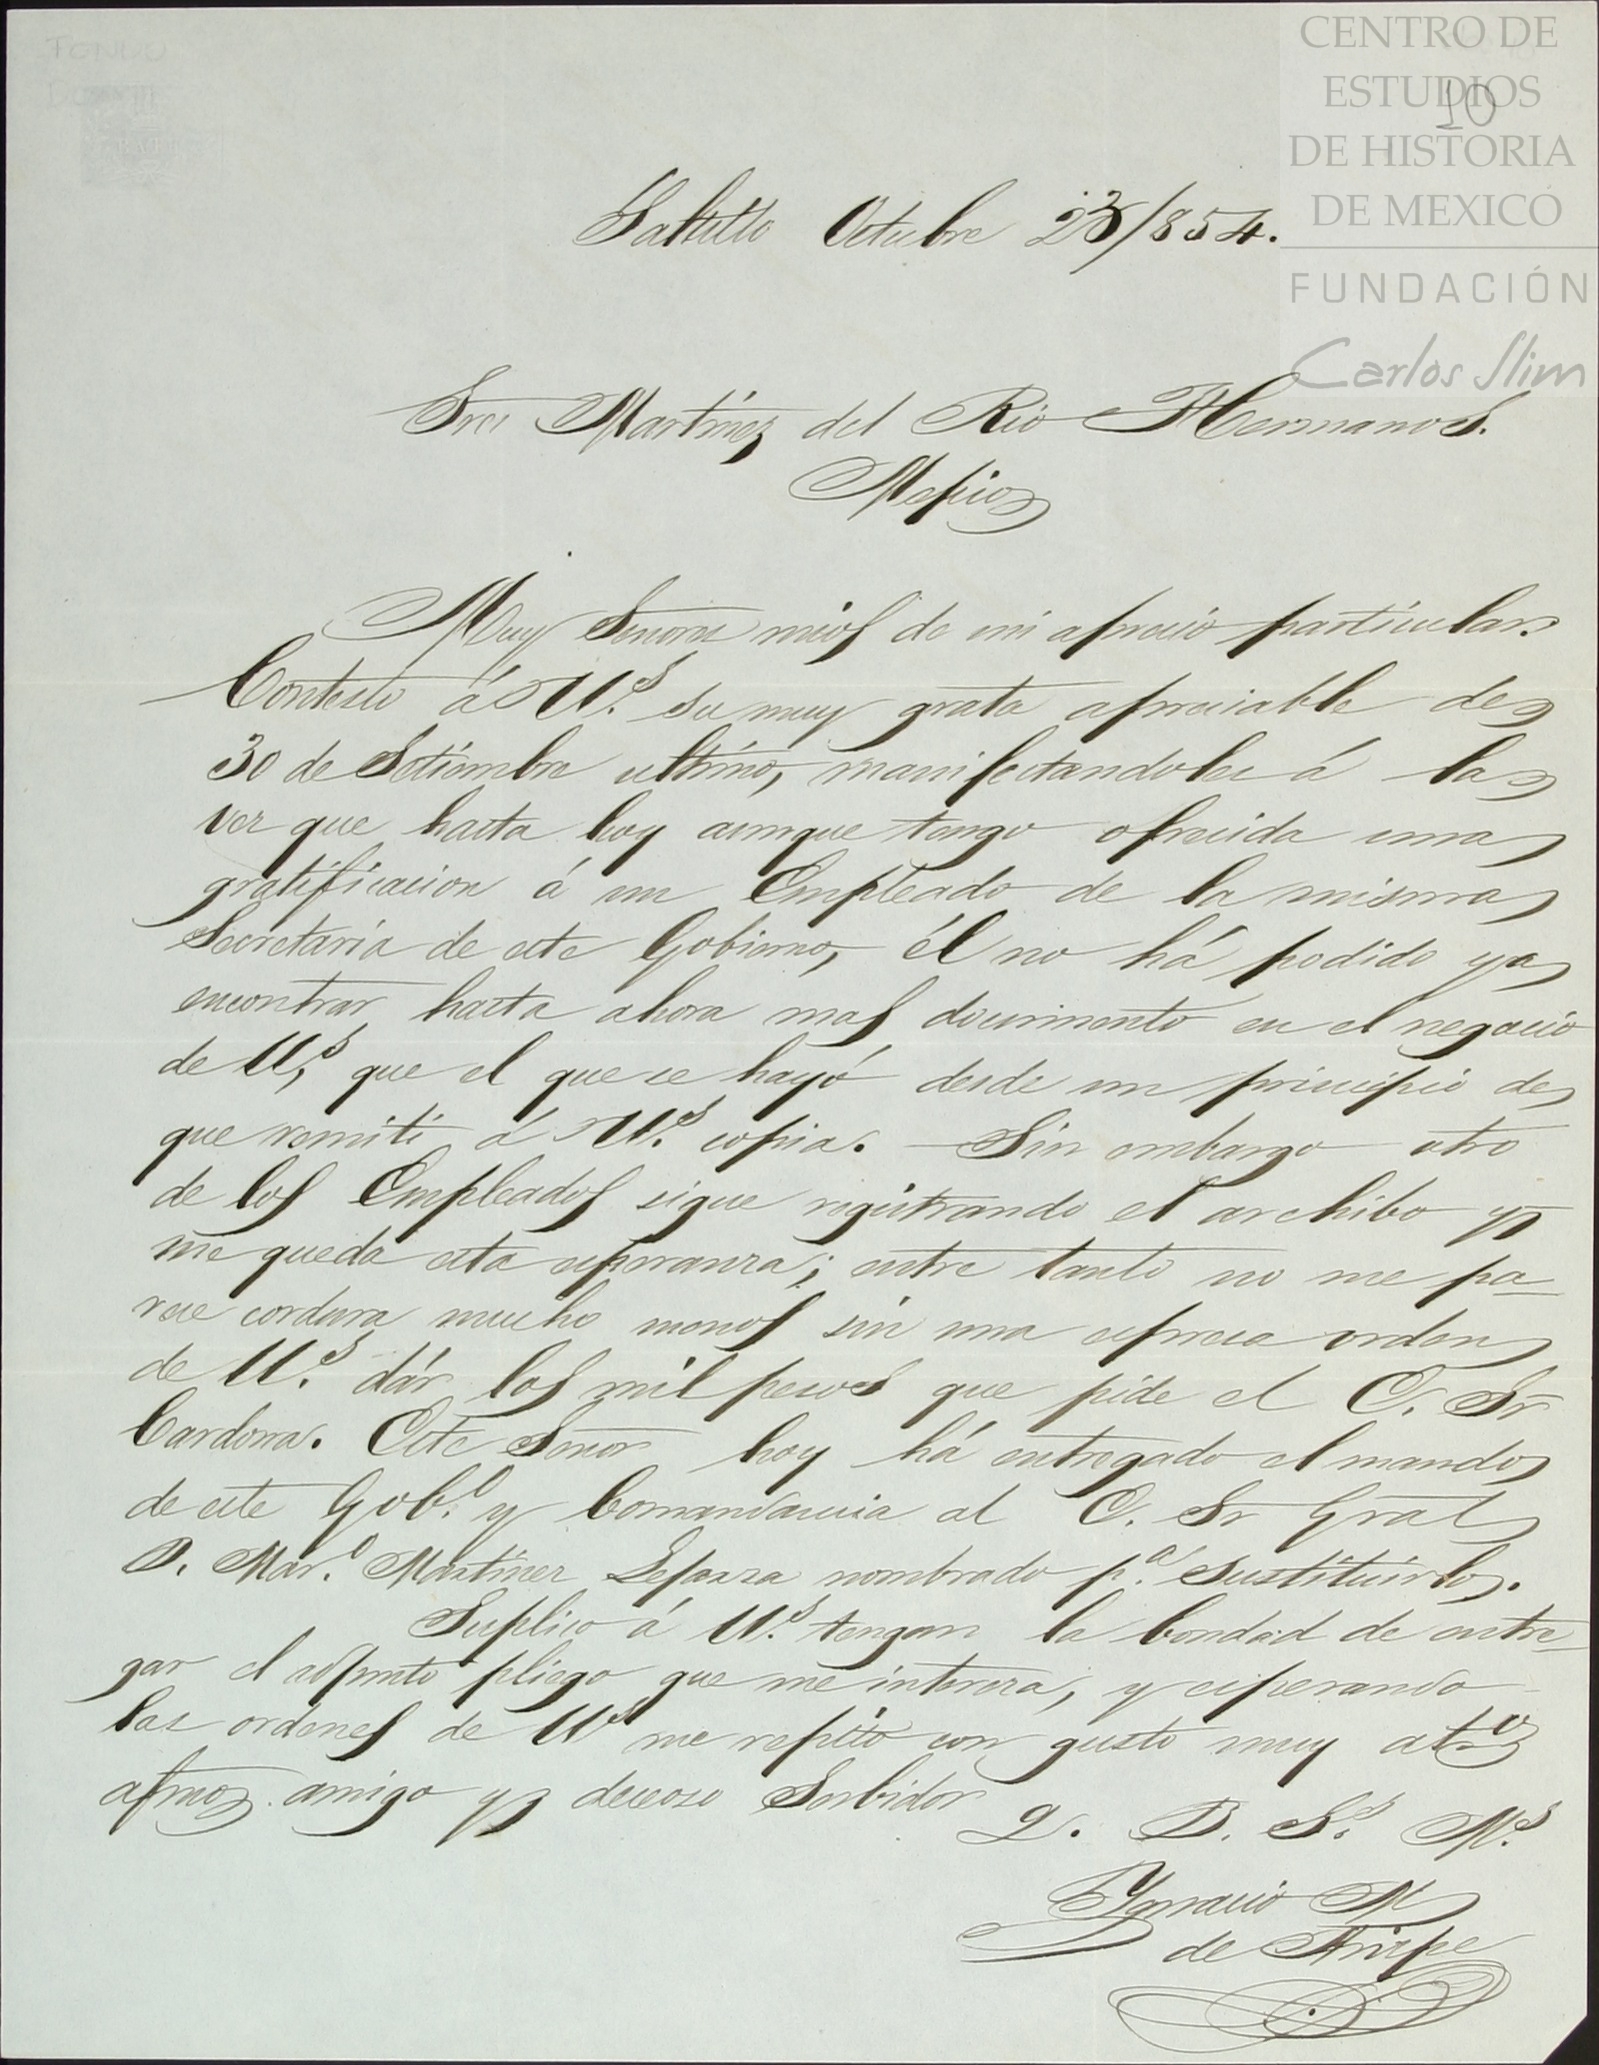 CENTRO DE
ESTUDIOS
DE HISTORIA
DE MEXICO
FUNDACIÓN
Carlos Slim
10
Saltillo Octubre 23/854.
Sres Martinez del Rio Hermanos.
Mejico
Muy Señores mios de mi aprecio particular.
Contesto á U.s su muy grata apreciable de
30 de Setiembre ultimo, manifestandoles á la
vez que hasta hoy aunque tengo ofrecida una
gratificacion á un Empleado de la misma
Secretaría de este Gobierno, él no há podido ya
encontrar hasta ahora mas documento en el negocio
de U.s que el que se hayó desde un principio de
que remití á U.s copia. Sin embargo otro
de los Empleados sigue registrando el archibo y
me queda esta esperanza; entre tanto no me pa-
rece cordura mucho menos sin una espresa orden
de U.s dár los mil pesos que pide el E. Sr
Cardona. Este Señor hoy há entregado el mando
de este Gob.o y Comandancia al E. Sr Gral
D. Mar.o Martinez Lejarza nombrado p.a sustituirlo.
Suplico á U.s tengan la bondad de entre-
gar el adjunto pliego que me interesa, y esperando
las ordenes de U.s me repito con gusto muy at.o
afmo. amigo y decoso Serbidor
Q. B. S.s M.s
Ygnacio M
de Arizpe